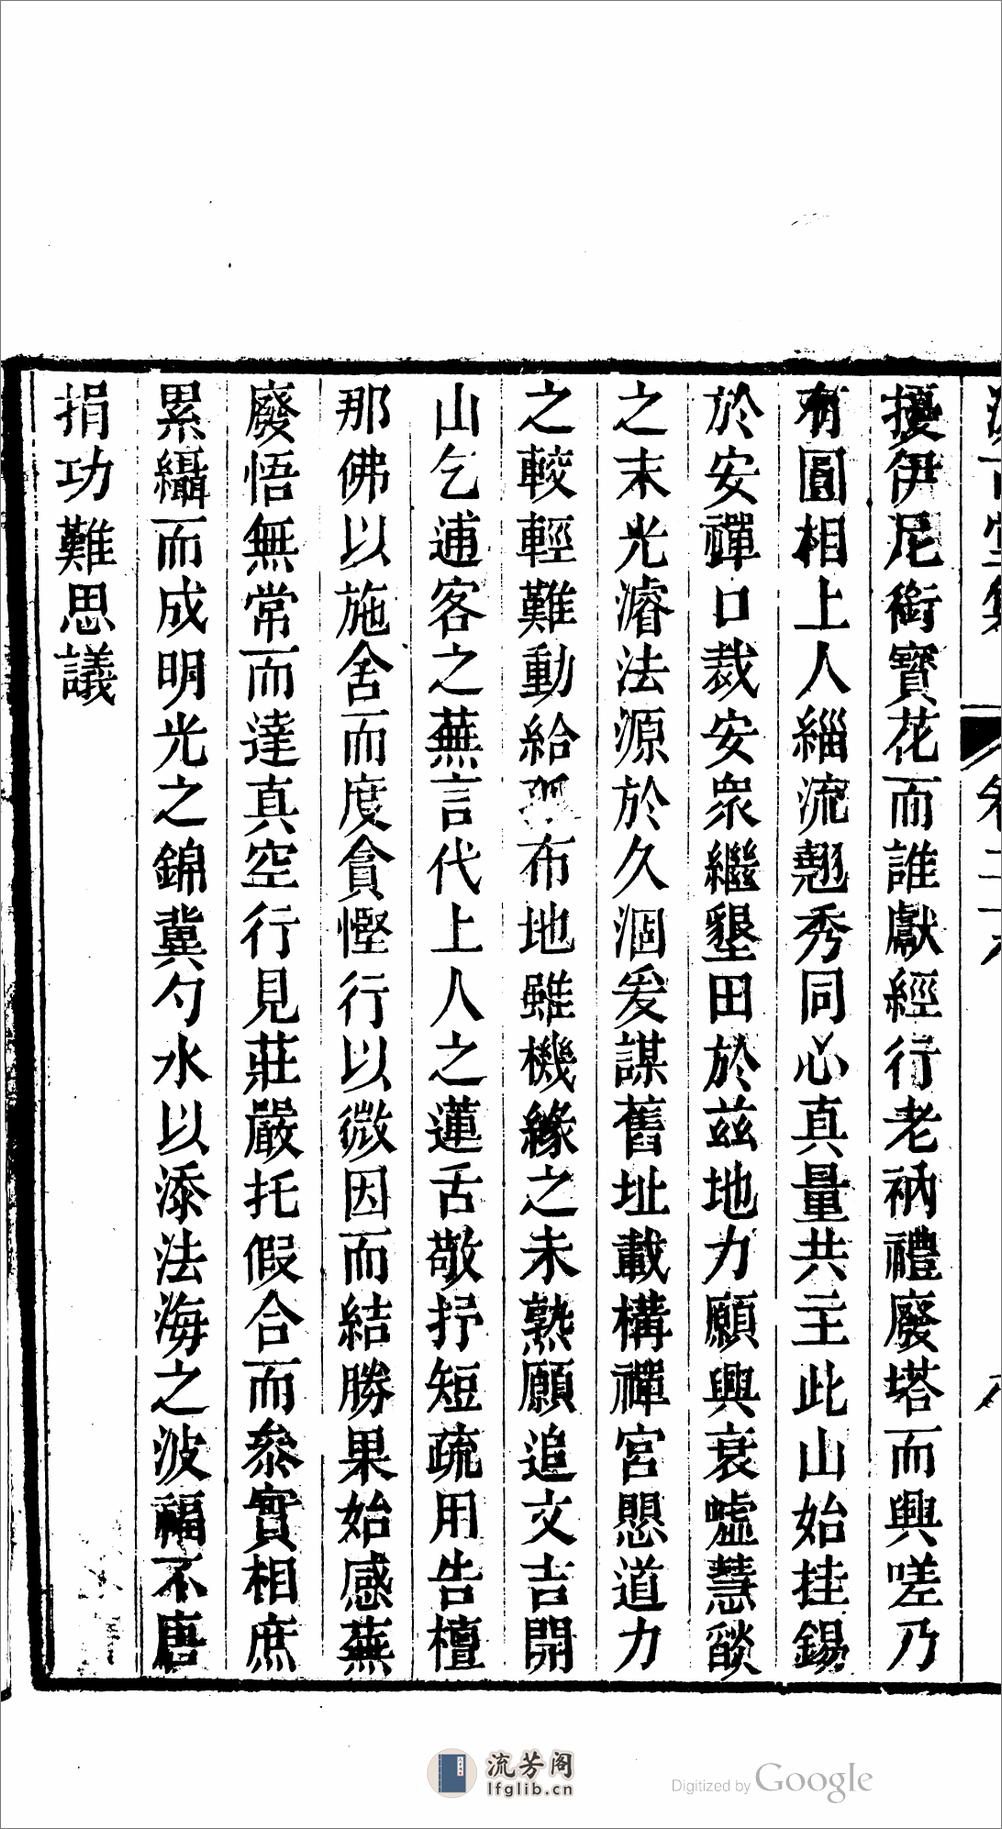 擾伊尼銜寶花而誰獻經行老衲禮廢塔而興嗟乃
有圓相上人緇流翹秀同心真量共主此山始挂錫
於安禪口裁安眾繼墾田於茲地力願興衰噓慧燄
之末光濬法源於久涸爰謀舊址載構禪宮思道力
之較輕難動給孤布地雖機緣之未熟願追文吉開
山乞逋客之蕪言代上人之蓮舌敬抒短疏用告檀
那佛以施舍而度貪慳行以微因而結勝果始感蕪
廢悟無常而達真空行見莊嚴托假合而參實相庶
累繦而成明光之錦冀勺水以添法海之波福不唐
捐功難思議
流芳阁
lfglib.cn
Digitized by Google